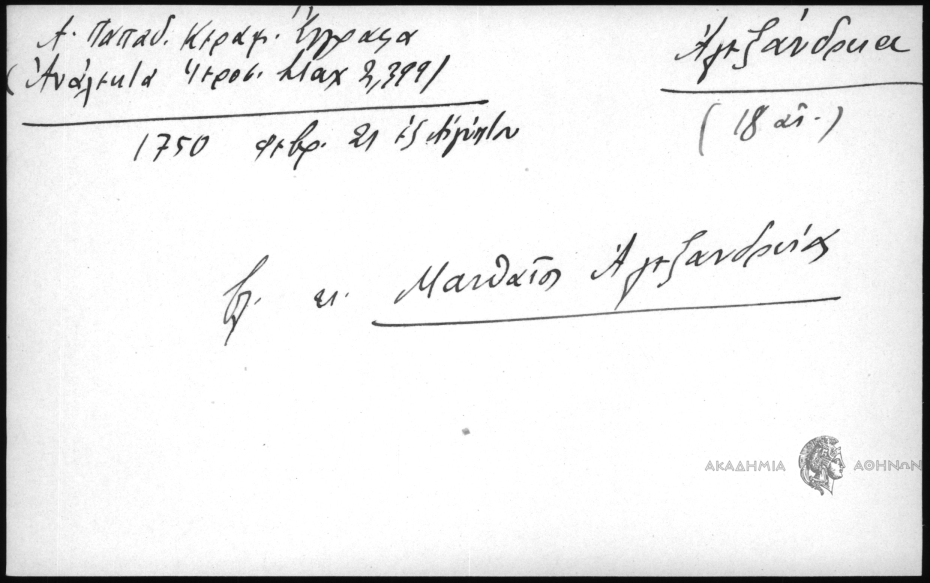 Α. Παπαδ. Κεραμ. Έγγραφα
Ἀλεξάνδρεια
(Ἀνάλεκτα Ἱεροσ. Σταχ 2,399)
(18 αἰ.)
1750 Φεβρ. 21 ἐξ Αἰγύπτου
βλ. εἰ. Ματθαῖος Ἀλεξανδρείας
ΑΚΑΔΗΜΙΑ ΑΘΗΝΩΝ